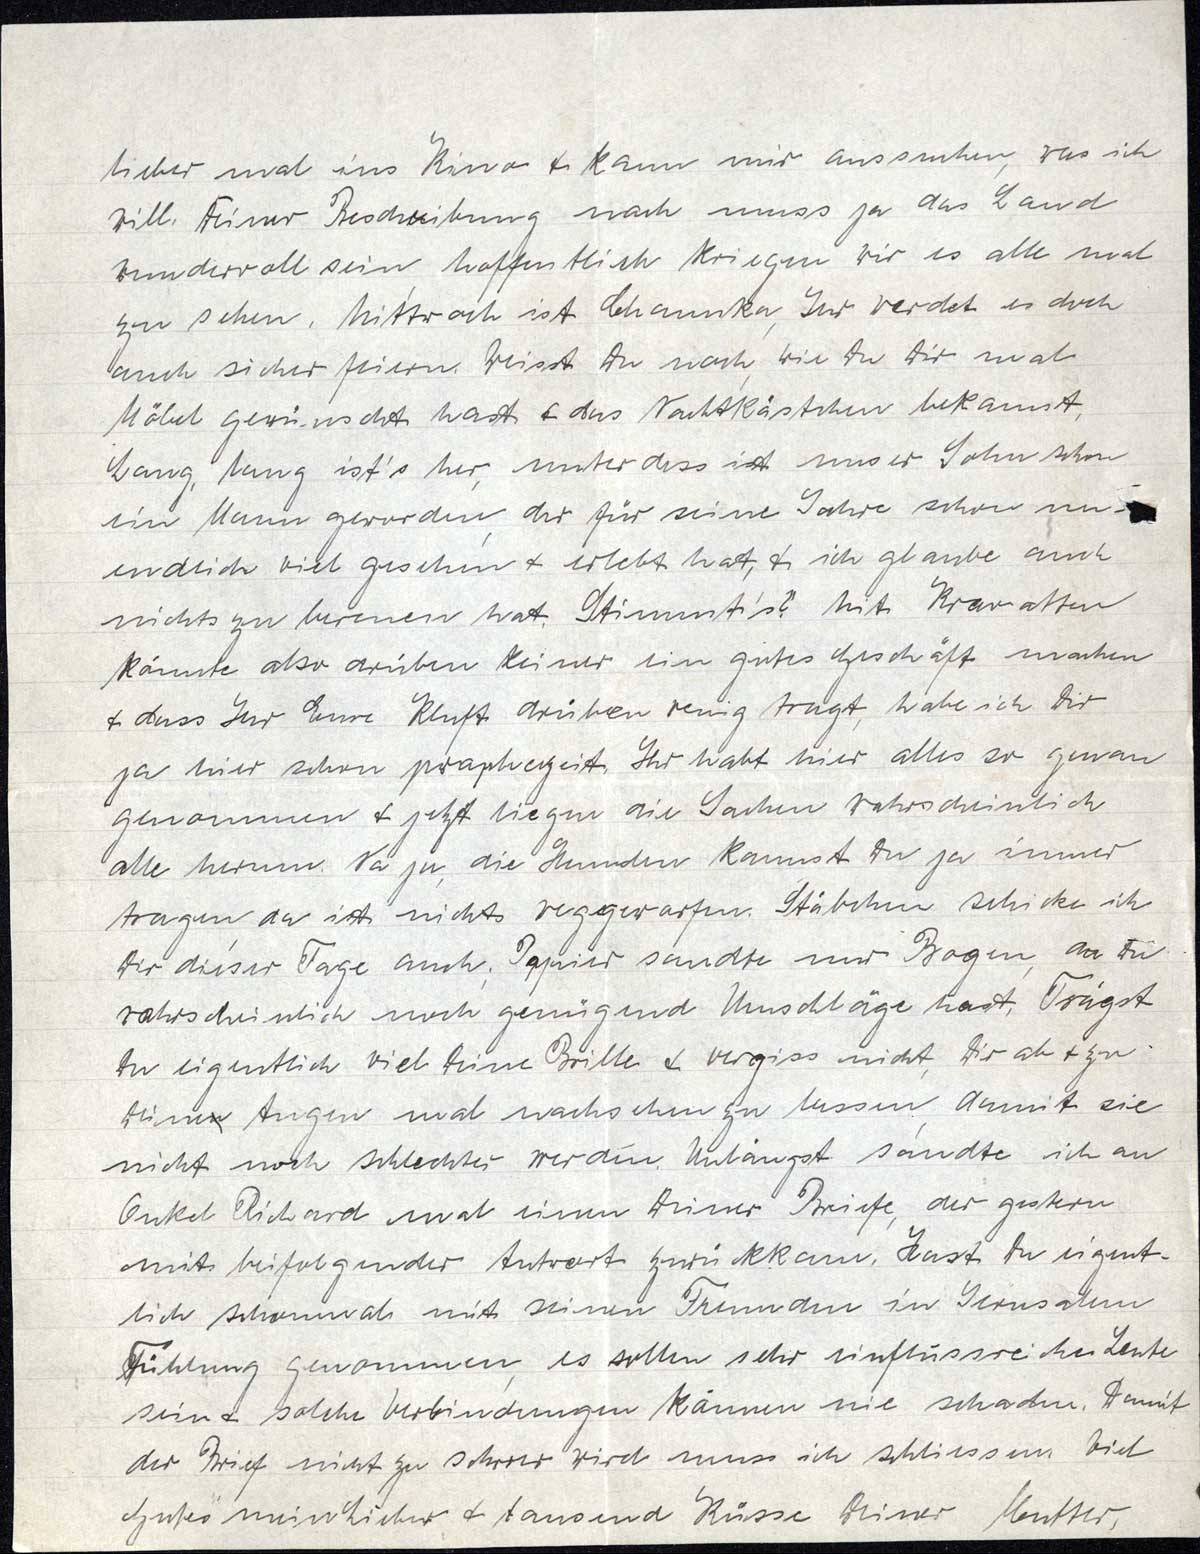 lieber mal ins Kino & kann mir aussuchen, was ich
will. Deiner Beschreibung nach muss ja das Land
wundervoll sein, hoffentlich kriegen wir es alle mal
zu sehen. Mittwoch ist Chanuka, Ihr werdet es doch
auch sicher feiern. Weisst Du noch, wie Du Dir mal
Möbel gewünscht hast & das Nachtkästchen bekamst,
Lang, lang ist's her, unterdess ist unser Sohn schon
ein Mann geworden, der für seine Jahre schon un-
endlich viel gesehen & erlebt hat, & ich glaube auch
nichts zu bereuen hat. Stimmt's? Mit Kravatten
könnte also drüben keiner ein gutes Geschäft machen
& dass Ihr Eure Kluft drüben wenig tragt, habe ich Dir
ja hier schon prophezeit. Ihr habt hier alles so genau
genommen & jetzt liegen die Sachen wahrscheinlich
alle herum. Na ja, die Hemden kannst Du ja immer
tragen, da ist nichts weggeworfen. Stäbchen schicke ich
Dir dieser Tage auch, Papier sandte nur Bogen, da Du
wahrscheinlich noch genügend Umschläge hast. Trägst
Du eigentlich viel Deine Brille & vergiss nicht, Dir ab & zu
Deine Augen mal nachsehen zu lassen, damit sie
nicht noch schlechter werden. Unlängst sandte ich an
Onkel Richard mal einen Deiner Briefe, der gestern
mit beifolgender Antwort zurückkam. Hast Du eigent-
lich schonmal mit seinen Freunden in Jerusalem
Fühlung genommen, es sollen sehr einflussreiche Leute
sein & solche Verbindungen können nie schaden. Damit
der Brief nicht zu schwer wird muss ich schliessen. Viel
Gutes mein Lieber & tausend Küsse Deiner Mutter,